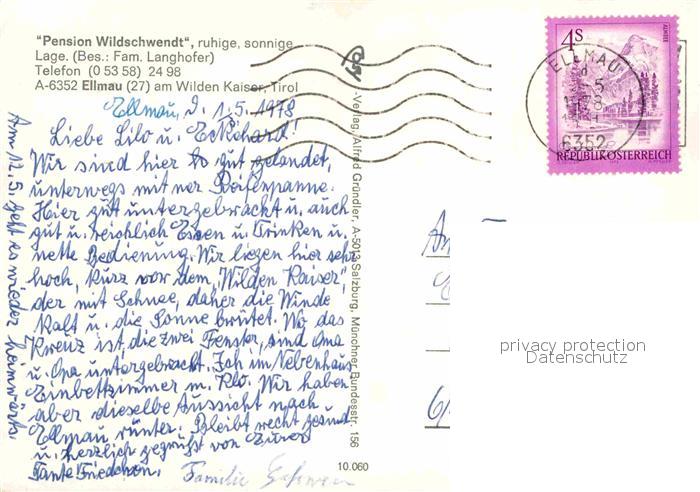 "Pension Wildschwendt", ruhige, sonnige
Lage. (Bes.: Fam. Langhofer)
Telefon (0 53 58) 24 98
A-6352 Ellmau (27) am Wilden Kaiser, Tirol
Ellmau, d. 1.5.1978
Liebe Lilo u. Eckehard!
Wir sind hier so gut gelandet,
unterwegs mit ner Reifenpanne.
Hier gutt untergebracht u. auch
gut u. reichlich Essen u. Trinken u.
nette Bedienung. Wir liegen hier sehr
hoch, kurz vor dem "Wilden Kaiser",
der mit Schnee, daher die Winde
kalt u. die Sonne brütet. Wo das
Kreuz ist, die zwei Fenster, sind Oma
u. Opa untergebracht. Ich im Nebenhaus
Einbettzimmer m. Klo. Wir haben
aber dieselbe Aussicht nach
Ellmau runter. Bleibt recht gesund
u. herzlich gegrüßt von Eurer
Tante Friedchen.
Familie
Am 12.5. geht es wieder heimwärts.
-Verlag, Alfred Gründler, A-5013 Salzburg, Münchner Bundesstr. 156
10.060
4 S
ALMSEE
REPUBLIK ÖSTERREICH
ELLMAU
6352
An
privacy protection
Datenschutz